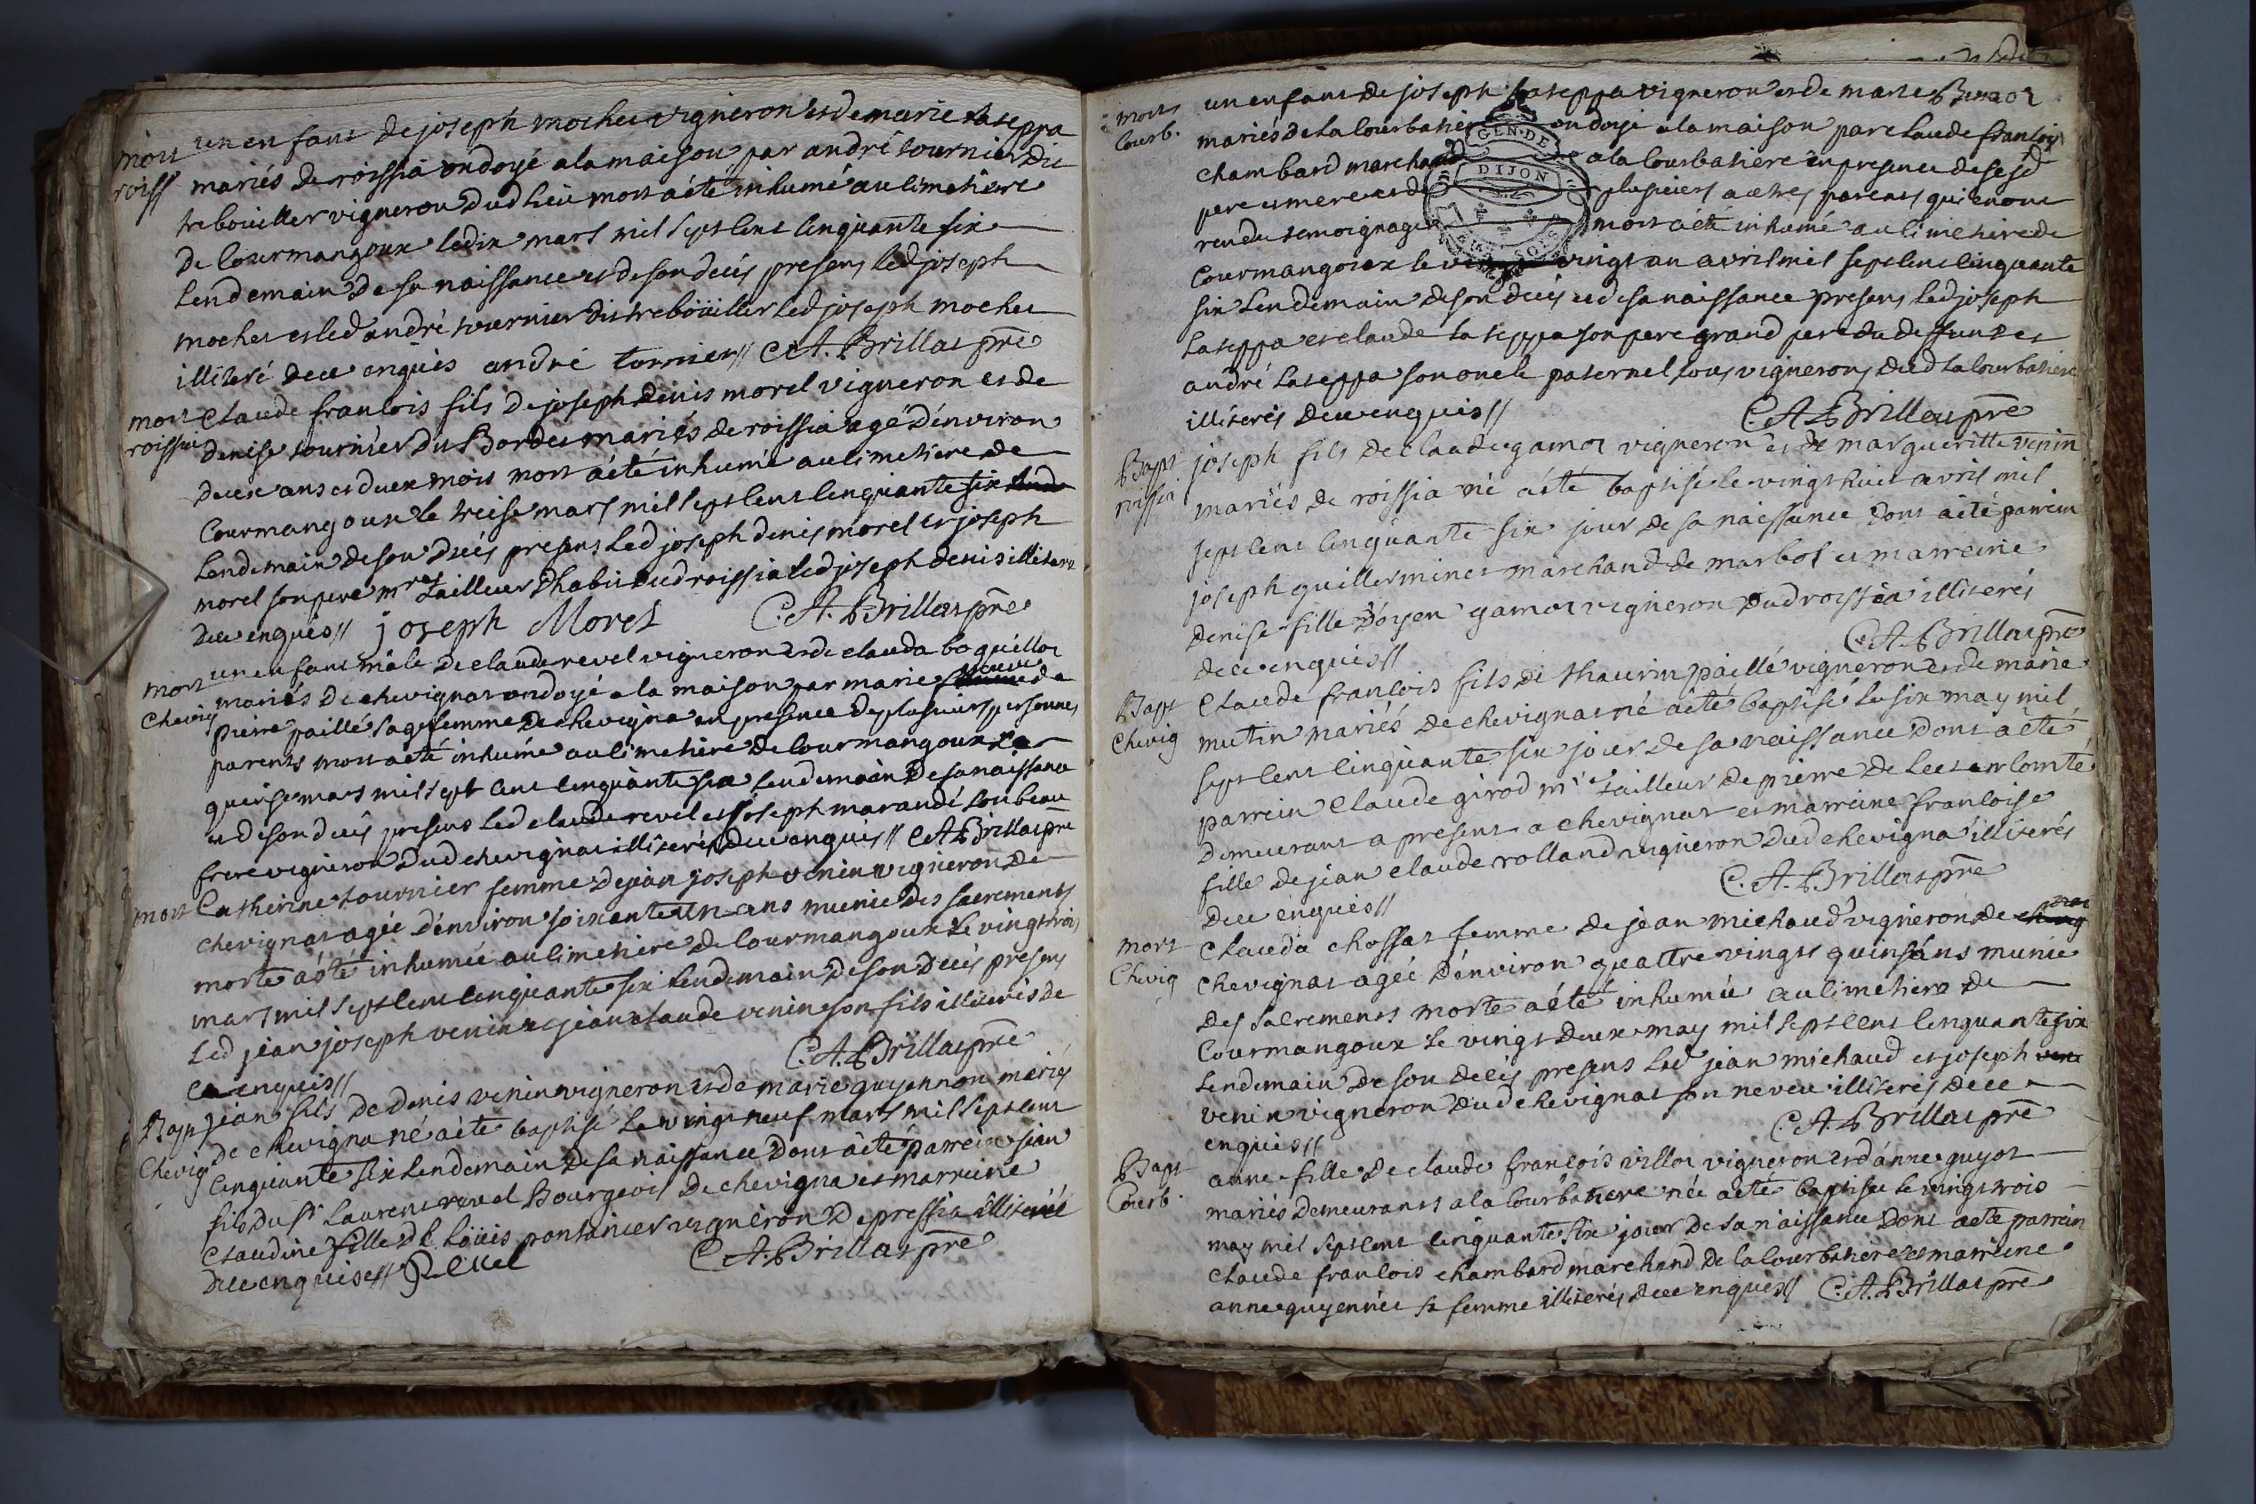 mort
roiss
un enfant de joseph mochet vigneron et de marie laseppa
mariés de roissia ondoyé a la maison par andré tournier dit
trebouiller vigneron dud lieu mort a été inhumé au cimetiere
de Courmangoux le dix mars mil sept cent cinquante six
lendemain de sa naissance et de son decés presens led joseph
mochet et led andré tournier dit trebouiller led joseph mochet
illiteré de ce enquis andré tornier // C.A. Brillat pre
mort
roissia
Claude francois fils de joseph denis morel vigneron et de
denise tournier du Bordet mariés de roissia agé d'environ
deux ans et deux mois mort a été inhumé au cimetiere de
Courmangoux le treise mars mil sept cent cinquante six
lendemain de son decés presens led joseph denis morel et joseph
morel son pere mre tailleur d'habit dud roissia led joseph denis illiteré
de ce enquis // joseph Morel C.A. Brillat pre
mort
Chevig
un enfant mâle de claude revel vigneron et de clauda boquillot
mariés de chevignat ondoyé a la maison par marie veuve de
pierre paillé sage femme de chevigna en presence de plusieurs personnes
parents mort a été inhumé au cimetiere de Courmangoux le
quinse mars mil sept cent cinquante six lendemain de sa naissance
et de son decés presens led claude revel et joseph marandé son beau
frere vigneron dud chevignat illiterés de ce enquis // C.A. Brillat pre
mort
Catherine tournier femme de jean joseph venin vigneron de
chevignat agée d'environ soixante un ans munie des sacrements
morte a été inhumée au cimetiere de Courmangoux le vingt trois
mars mil sept cent cinquante six lendemain de son decés presens
led jean joseph venin et jean claude venin son fils illiterés de
ce enquis // C.A. Brillat pre
Bapt
Chevig
jean fils de denis venin vigneron et de marie guyennon mariés
de chevigna né a été baptisé le vingt neuf mars mil sept cent
cinquante six lendemain de sa naissance dont a été parrein jean
fils du sr Laurent revel Bourgeois de chevigna et marreine
Claudine fille de Loüis pontanier vigneron de pressia illiterée
de ce enquise // Revel C.A. Brillat pre
mort
Courb.
un enfant de joseph laseppa vigneron et de marie
mariés de la Courbatiere ondoyé a la maison par claude francois
chambard marchand a la Courbatiere en presence de sesd
pere et mere et de plusieurs autres parens qui en ont
rendu temoignage mort a été inhumé au cimetiere de
Courmangoux le vingt un avril mil sept cent cinquante
six lendemain de son decés et de sa naissance presens led joseph
laseppa et claude laseppa son pere grand pere du deffunt et
andré laseppa son oncle paternel tous vignerons dud la Courbatiere
illiterés de ce enquis // C.A. Brillat pre
Bapt
roissia
joseph fils de claude gamot vigneron et de margueritte venin
mariés de roissia né a été baptisé le vingt huit avril mil
sept cent cinquante six jour de sa naissance dont a été parrein
joseph guillerminet marchand de marbos et marreine
denise fille d'oyen gamot vigneron dud roissia illiterés
de ce enquis // C.A. Brillat pre
Bapt
Chevig
Claude francois fils de thaurin paillé vigneron et de marie
mutin mariés de chevignat né a été baptisé le six may mil
sept cent cinquante six jour de sa naissance dont a été
parrein Claude girod mre tailleur de pierre de lect en comté
demeurant a present a chevignat et marreine francoise
fille de jean claude rolland vigneron dud chevigna illiterés
de ce enquis // C.A. Brillat pre
mort
Chevig
Clauda chossat femme de jean michaud vigneron de
chevignat agée d'environ quattre vingts quinse ans munie
des sacrements morte a été inhumée au cimetiere de
Courmangoux le vingt deux may mil sept cent cinquante six
lendemain de son decés presens led jean michaud et joseph
venin vigneron dud chevignat son neveu illiterés de ce
enquis // C.A. Brillat pre
Bapt
Courb.
anne fille de claude francois villot vigneron et d'anne guyot
mariés demeurants a la Courbatiere née a été baptisée le vingt trois
may mil sept cent cinquante six jour de sa naissance dont a été parrein
claude francois chambard marchand de la Courbatiere et marreine
anne guyennet sa femme illiterés de ce enquis // C.A. Brillat pre
GEN. DE
DIJON